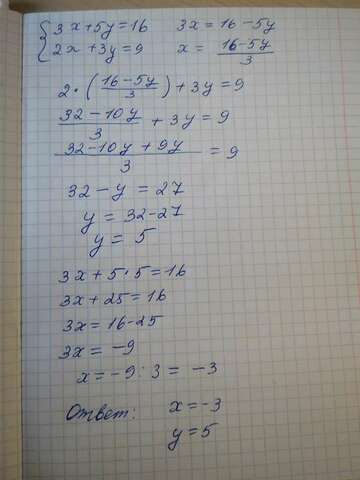 3x+5y=16    3x = 16-5y
2x+3y=9    x = (16-5y)/3
2·((16-5y)/3)+3y=9
(32-10y)/3 + 3y = 9
(32-10y+9y)/3 = 9
32-y = 27
y = 32-27
y = 5
3x+5·5=16
3x+25=16
3x=16-25
3x= -9
x=-9:3 = -3
Ответ: x=-3
y=5